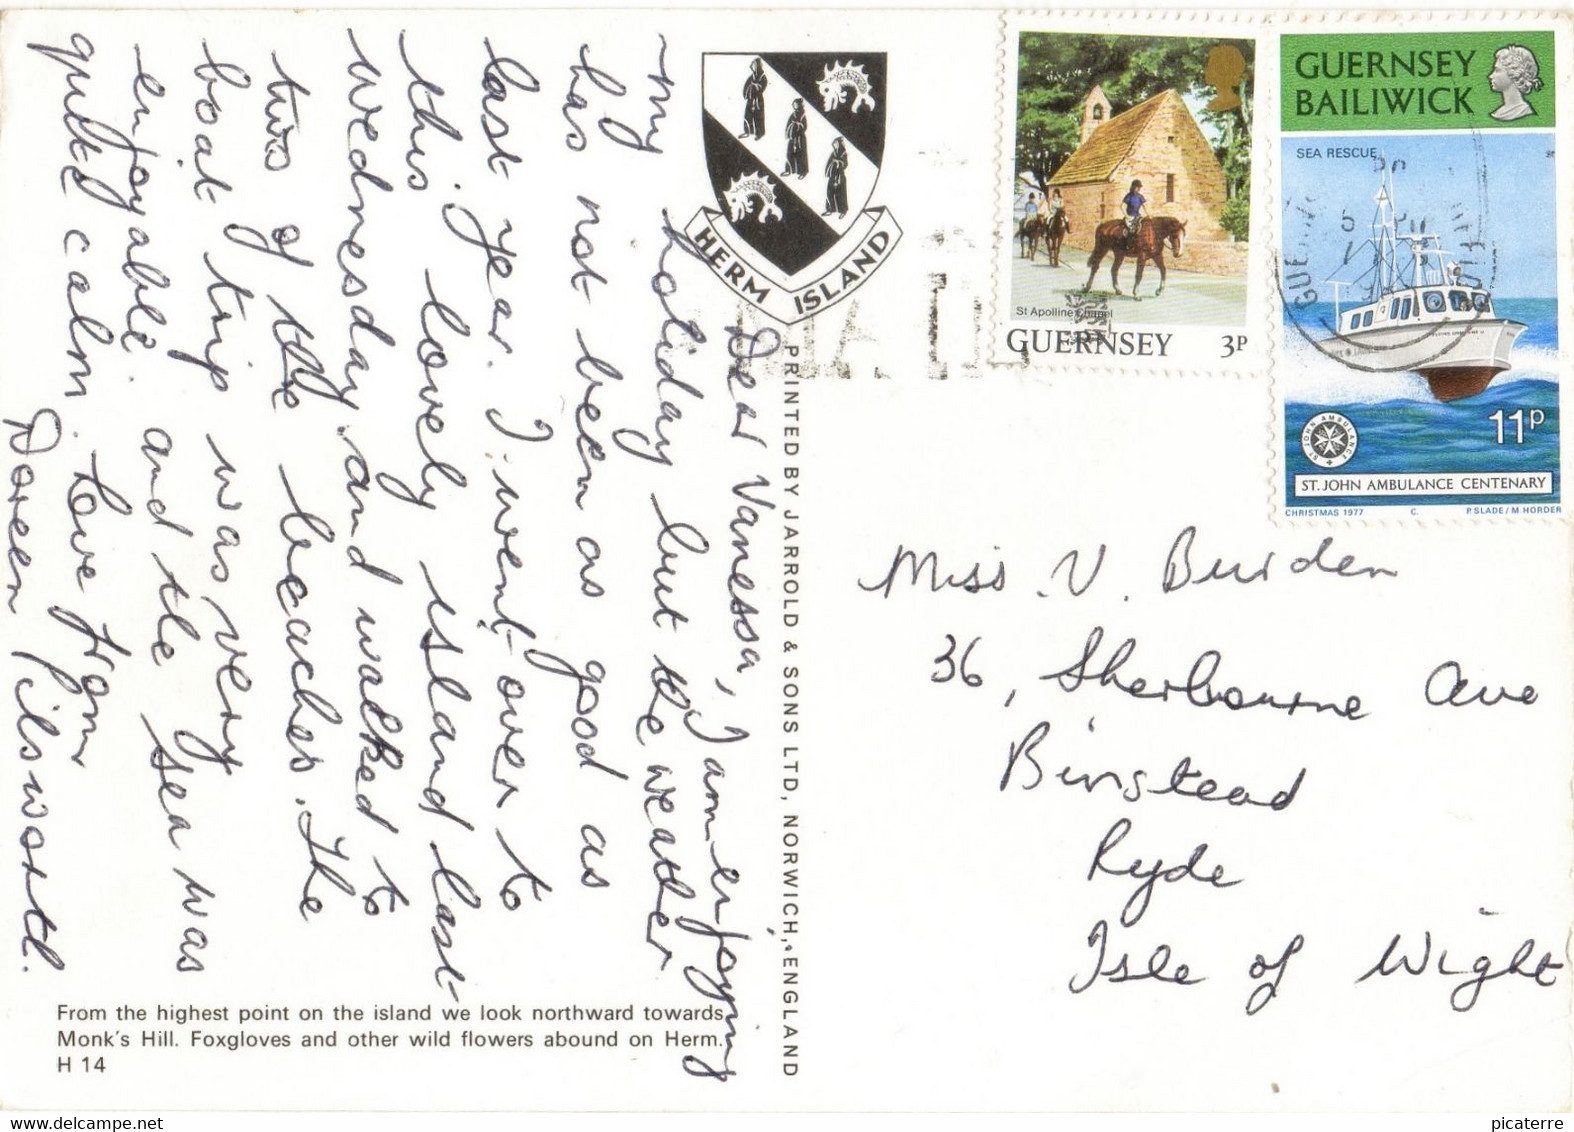 Dear Vanessa, I am enjoying
my holiday but the weather
has not been as good as
last year. I went over to
this lovely island last
Wednesday and walked to
two of the beaches. The
boat trip was very
enjoyable and the sea was
quite calm. Love from
Doreen Pilsworth.
HERM ISLAND
PRINTED BY JARROLD & SONS LTD, NORWICH, ENGLAND
From the highest point on the island we look northward towards
Monk's Hill. Foxgloves and other wild flowers abound on Herm.
H 14
St Apolline Chapel
GUERNSEY 3P
GUERNSEY
BAILIWICK
SEA RESCUE
11p
ST. JOHN AMBULANCE
ST. JOHN AMBULANCE CENTENARY
CHRISTMAS 1977 C. P. SLADE / M. HORDER
Miss V. Burden
36, Sherbourne Ave
Binstead
Ryde
Isle of Wight
picaterre